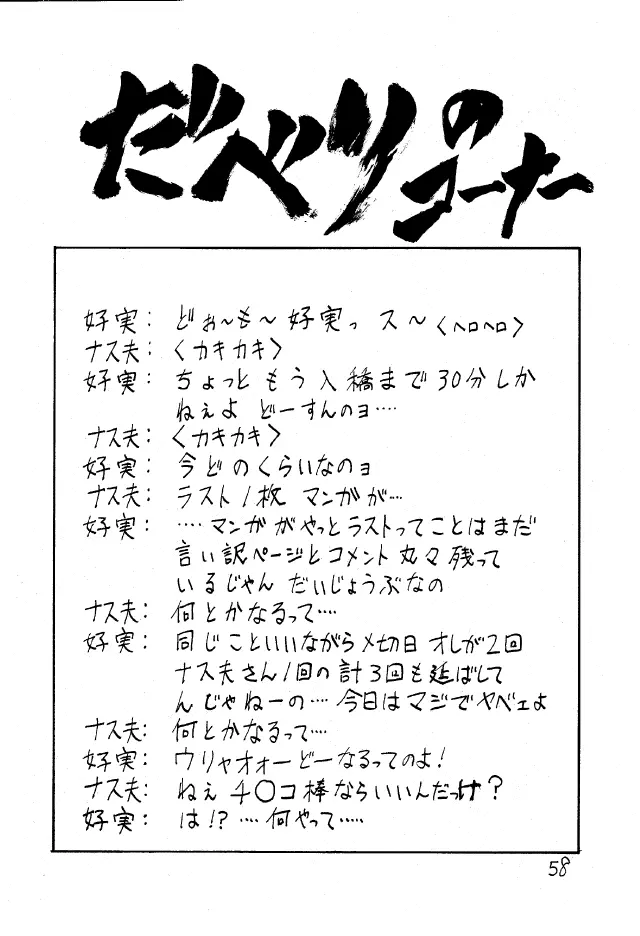 だべりのコーナー
好実: どぉ～も～ 好実っ ス～〈ヘロヘロ〉
ナス夫: 〈カキカキ〉
好実: ちょっと もう 入稿まで 30分しか
ねぇよ どーすんのョ‥‥
ナス夫: 〈カキカキ〉
好実: 今どのくらいなのョ
ナス夫: ラスト1枚 マンガが‥‥
好実: ‥‥マンガがやっとラストってことはまだ
言い訳ページとコメント丸々残って
いるじゃん だいじょうぶなの
ナス夫: 何とかなるって‥‥
好実: 同じこといいながら〆切日 オレが2回
ナス夫さん1回の計3回も延ばして
んじゃねーの‥‥今日はマジでヤベェよ
ナス夫: 何とかなるって‥‥
好実: ウリャオォーどーなるってのよ!
ナス夫: ねぇ チ〇コ棒ならいいんだっけ?
好実: は!? ‥‥何やって‥‥‥
58